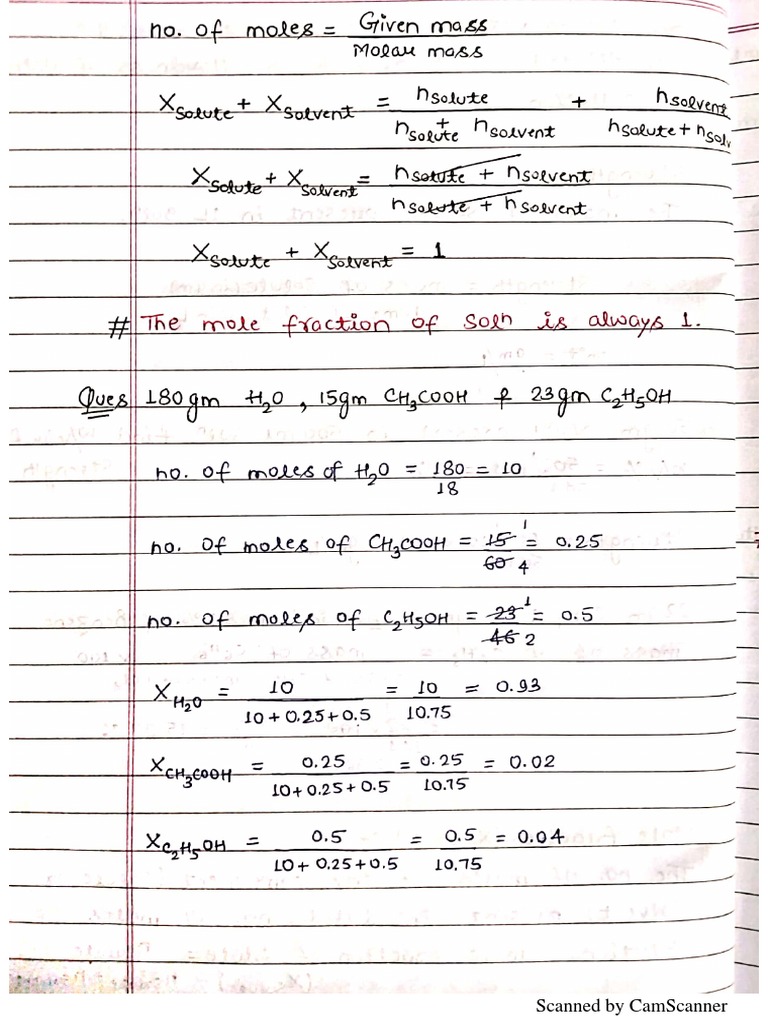 no. of moles = Given mass / Molar mass
X Solute + X Solvent = n solute / n solute + n solvent + n solvent / n solute + n solv
X Solute + X Solvent = n solute + n solvent / n solute + n solvent
X Solute + X Solvent = 1
# The mole fraction of Soln is always 1.
Ques 180gm H₂O , 15gm CH₃COOH & 23gm C₂H₅OH
no. of moles of H₂O = 180/18 = 10
no. of moles of CH₃COOH = 15/60 1/4 = 0.25
no. of moles of C₂H₅OH = 23/46 1/2 = 0.5
X H₂O = 10 / 10 + 0.25 + 0.5 = 10 / 10.75 = 0.93
X CH₃COOH = 0.25 / 10 + 0.25 + 0.5 = 0.25 / 10.75 = 0.02
X C₂H₅OH = 0.5 / 10 + 0.25 + 0.5 = 0.5 / 10.75 = 0.04
Scanned by CamScanner